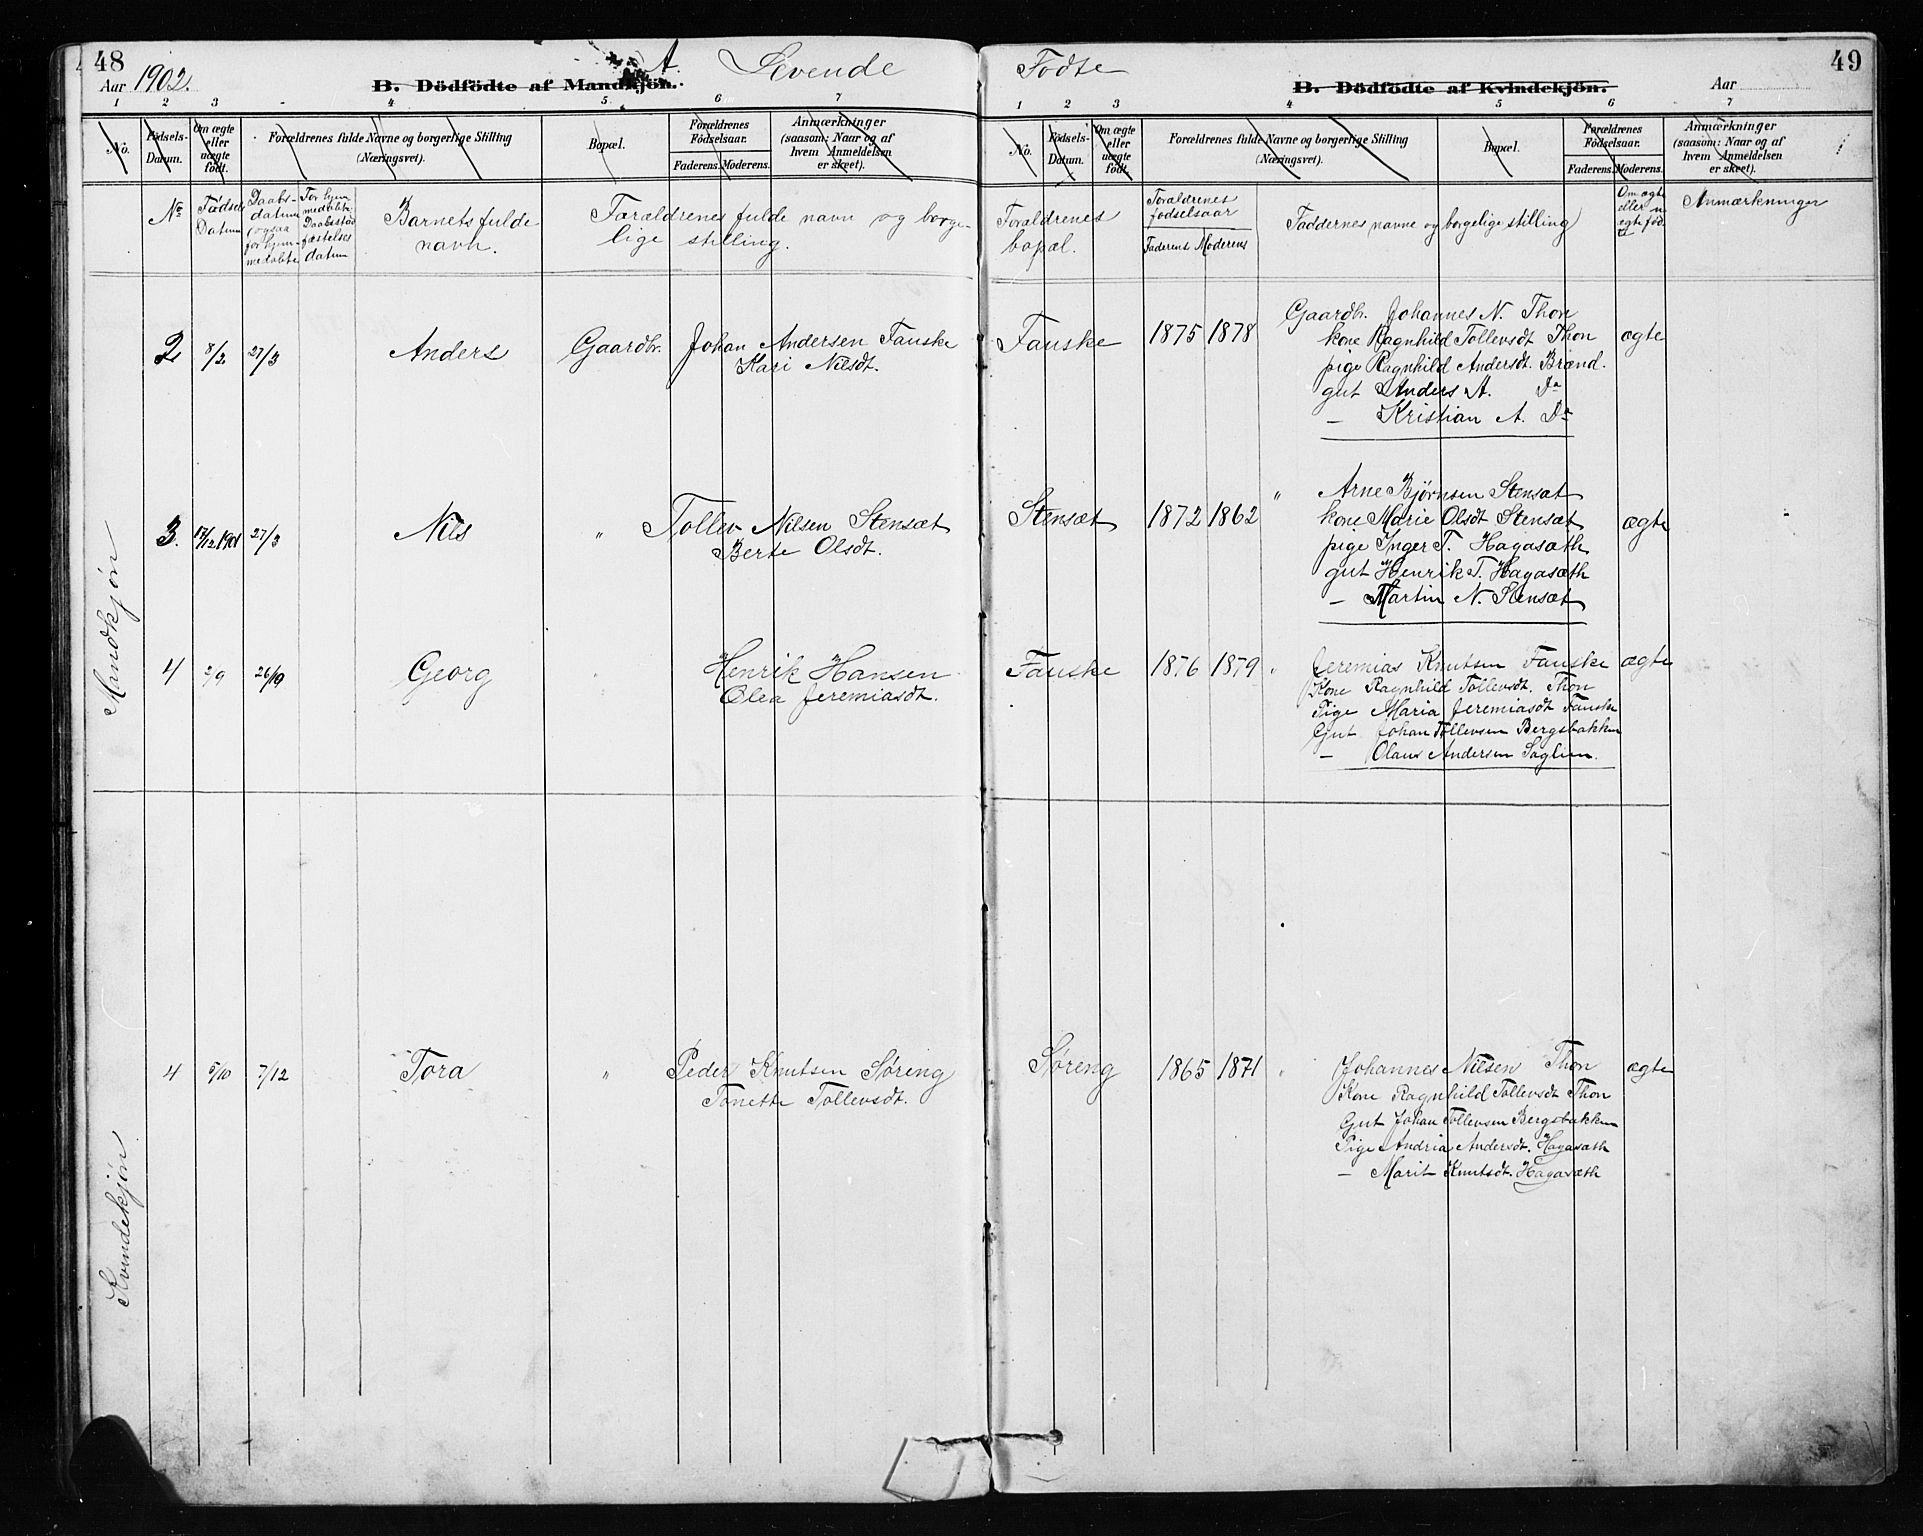 48
Aar 1902.
A. Levende Fødte
B. Dödfödte af Mandkjön.
B. Dödfödte af Kvindekjön.
Aar
49
1 2 3 4 5 6 7
1 2 3 4 5 6 7
No. Födsels-Datum. Om ægte eller uægte födt. Forældrenes fulde Navne og borgerlige Stilling (Næringsvei). Bopæl. Forældrenes Födselsaar. Faderens. Moderens. Anmærkninger (saasom: Naar og af hvem Anmeldelsen er skeet).
No. Födsels-Datum. Om ægte eller uægte födt. Forældrenes fulde Navne og borgerlige Stilling (Næringsvei). Bopæl. Forældrenes Födselsaar. Faderens. Moderens. Anmærkninger (saasom: Naar og af hvem Anmeldelsen er skeet).
No Fødsels Datum Daabs-datum (ogsaa for hjemmedøbte For hjemmedøbte Daabsstadfæstelses datum Barnets fulde navn. Forældrenes fulde navn og borgelige stilling.
Forældrenes bopæl. Forældrenes fødselsaar Faderens Moderens Faddernes navne og borgelige stilling Om ægte eller uægte fød. Anmærkninger
Mandkjøn
2 8/2 27/3 Anders Gaardbr. Johan Andersen Fauske
Kari Nilsdt.
Fauske 1875 1878 Gaardbr. Johannes N. Thon
kone Ragnhild Tollevsdt Thon ægte
pige Ragnhild Andersdt. Brænd.
gut Anders A. Do
— Kristian A. Do
3. 17/12 1901 27/3 Nils " Tollev Nilsen Stensæt
Berte Olsdt.
Stensæt 1872 1862 " Arne Bjørnsen Stensæt
kone Marie Olsdt Stensæt ægte
pige Inger T. Hagasæth
gut Henrik T. Hagasæth
— Martin N. Stensæt
4 2/9 26/9 Georg " Henrik Hansen
Olea Jeremiasdt.
Fauske 1876 1879 " Jeremias Knutsen Fauske ægte
Kone Ragnhild Tollevsdt. Thon
Pige Maria Jeremiasdt Fauske
Gut Johan Tollevsen Bergsbakken
— Olaus Andersen Saglien.
Kvindekjøn
4 5/10 7/12 Tora " Peder Knutsen Søreng
Tonette Tollevsdt.
Søreng 1865 1871 " Johannes Nilsen Thon ægte
Kone Ragnhild Tollevsdt Thon
Gut Johan Tollevsen Bergsbakken
Pige Andria Andersdt. Hagasæth
— Marit Knutsdt. Hagasæth